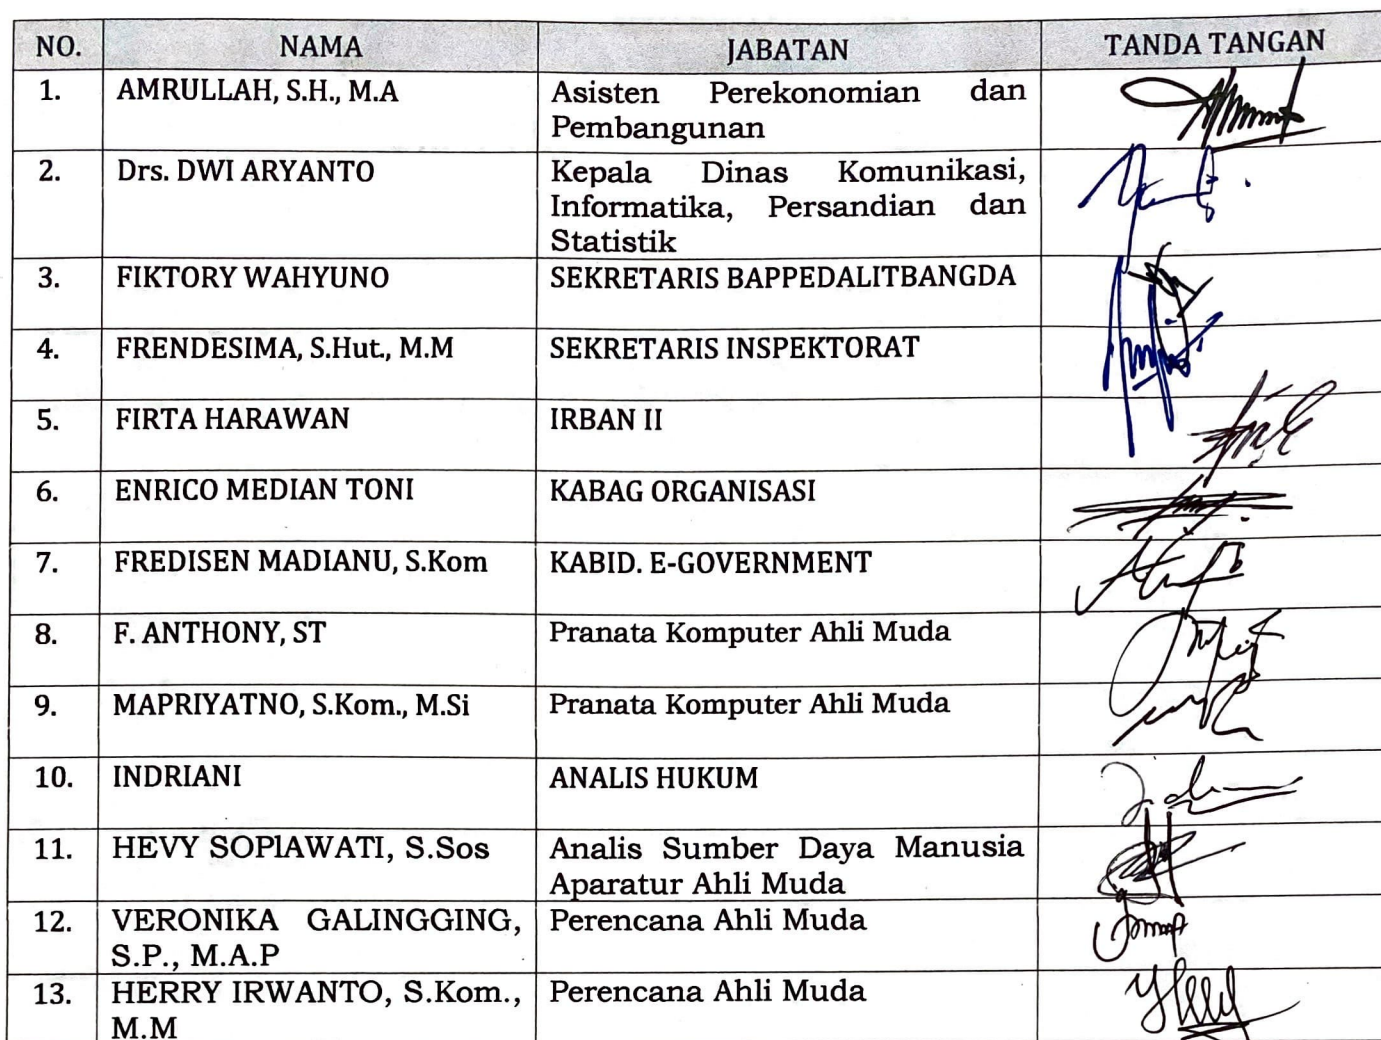 NO. NAMA JABATAN TANDA TANGAN
1. AMRULLAH, S.H., M.A Asisten Perekonomian dan
Pembangunan
2. Drs. DWI ARYANTO Kepala Dinas Komunikasi,
Informatika, Persandian dan
Statistik
3. FIKTORY WAHYUNO SEKRETARIS BAPPEDALITBANGDA
4. FRENDESIMA, S.Hut., M.M SEKRETARIS INSPEKTORAT
5. FIRTA HARAWAN IRBAN II
6. ENRICO MEDIAN TONI KABAG ORGANISASI
7. FREDISEN MADIANU, S.Kom KABID. E-GOVERNMENT
8. F. ANTHONY, ST Pranata Komputer Ahli Muda
9. MAPRIYATNO, S.Kom., M.Si Pranata Komputer Ahli Muda
10. INDRIANI ANALIS HUKUM
11. HEVY SOPIAWATI, S.Sos Analis Sumber Daya Manusia
Aparatur Ahli Muda
12. VERONIKA GALINGGING, Perencana Ahli Muda
S.P., M.A.P
13. HERRY IRWANTO, S.Kom., Perencana Ahli Muda
M.M